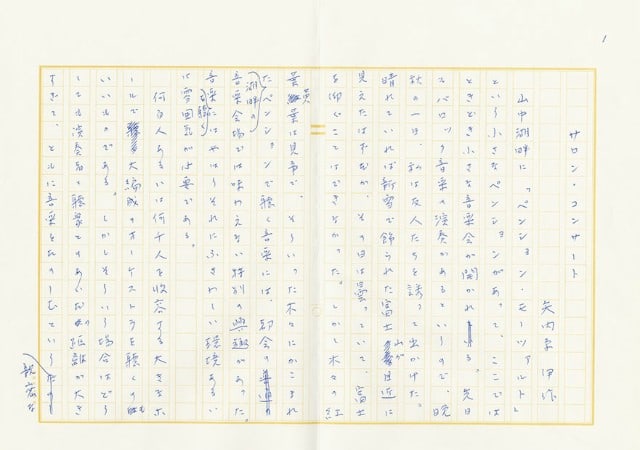 1
サロン・コンサート
矢内原伊作
山中湖畔に「ペンション・モーツァルト」
という小さなペンションがあって、ここでは
ときどき小さな音楽会が開かれる。先日
バロック音楽の演奏があるというので、晩
秋の一日、私は友人たちを誘って出かけた。
晴れていれば新雪で飾られた富士山が目近に
見えたはずだが、その日は曇っていて、富士
を仰ぐことはできなかった。しかし木々の紅
葉黄葉は見事で、そういった木々にかこまれ
た湖畔のペンションで聴く音楽には、都会の普通の
音楽会場では味わえない特別の興趣があった。
音楽を聴くにはやはりそれにふさわしい環境あるい
は雰囲気が必要である。
何百人あるいは何千人を収容する大きなホ
ールで大編成のオーケストラを聴くのも
いいものである。しかしそういう場合はどう
しても演奏者と聴衆とのあいだの距離が大き
すぎて、ともに音楽をたのしむという
親密な